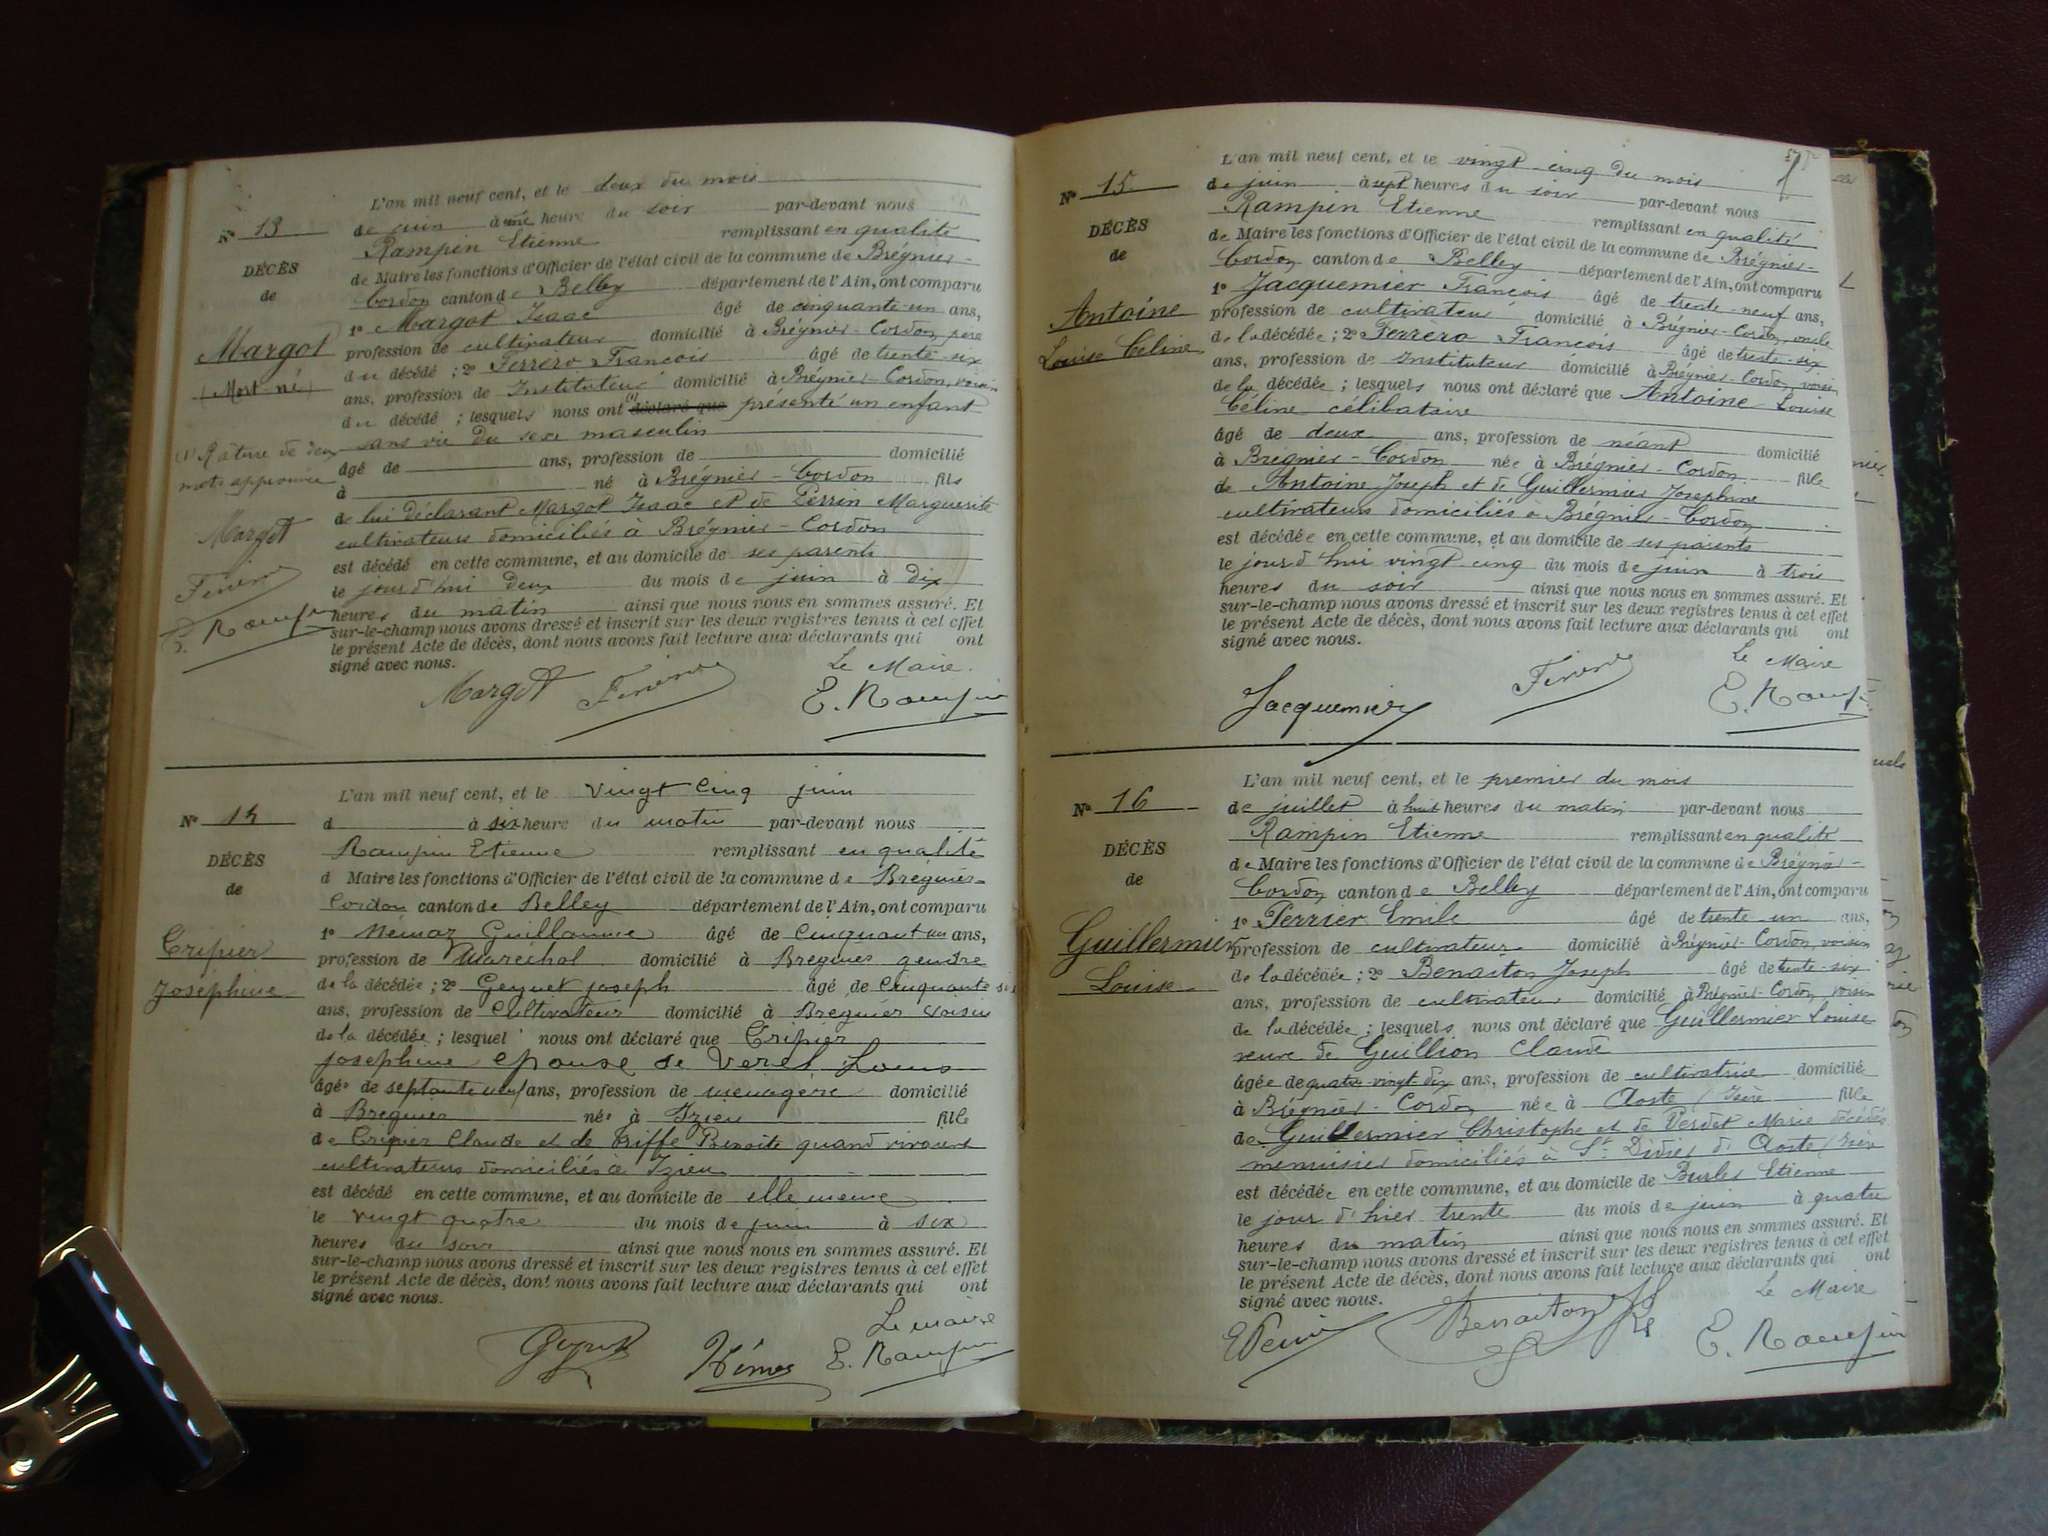 L'an mil neuf cent, et le deux du mois
N° 13 de juin à une heure du soir par-devant nous
Rampin Etienne remplissant en qualité
DÉCÈS de Maire les fonctions d'Officier de l'état civil de la commune de Brégnier-
de Cordon canton de Belley département de l'Ain, ont comparu
1° Margot Isaac âgé de cinquante-un ans,
Margot profession de cultivateur domicilié à Brégnier-Cordon, père
(Mort né) du décédé ; 2° Ferrero François âgé de trente-six
ans, profession de Instituteur domicilié à Brégnier-Cordon, voisin
du décédé ; lesquels nous ont (1) déclaré que présenté un enfant
(1) Râture de deux sans vie du sexe masculin
mots approuvée âgé de ans, profession de domicilié
à né à Brégnier-Cordon fils
de lui déclarant Margot Isaac et de Perrin Marguerite
Margot cultivateurs domiciliés à Brégnier-Cordon
est décédé en cette commune, et au domicile de ses parents
le jour d'hui deux du mois de juin à dix
E. Rampin heures du matin ainsi que nous nous en sommes assuré. Et
sur-le-champ nous avons dressé et inscrit sur les deux registres tenus à cet effet
le présent Acte de décès, dont nous avons fait lecture aux déclarants qui ont
signé avec nous. Le Maire
Margot E. Rampin
L'an mil neuf cent, et le vingt cinq juin
N° 14 d à six heure du matin par-devant nous
Rampin Etienne remplissant en qualité
DÉCÈS d Maire les fonctions d'Officier de l'état civil de la commune de Brégnier-
de Cordon canton de Belley département de l'Ain, ont comparu
1° Guillaume âgé de cinquant un ans,
Cripier profession de Marechal domicilié à Bregnier gendre
Joséphine de la décédée ; 2° joseph âgé de cinquante six
ans, profession de Cultivateur domicilié à Bregnier voisin
de la décédée ; lesquel nous ont déclaré que Cripier
josephine epouse de Veret Louis
âgée de septante neuf ans, profession de menagère domicilié
à Bregnier née à Izieu fille
de Cripier Claude et de Triffe Benoite quand vivaient
cultivateurs domiciliés à Izieu
est décédé en cette commune, et au domicile de elle meme
le vingt quatre du mois de juin à six
heures du soir ainsi que nous nous en sommes assuré. Et
sur-le-champ nous avons dressé et inscrit sur les deux registres tenus à cet effet
le présent Acte de décès, dont nous avons fait lecture aux déclarants qui ont
signé avec nous.
Le maire
E. Rampin
L'an mil neuf cent, et le vingt-cinq du mois
N° 15 de juin à sept heures du soir par-devant nous
Rampin Etienne remplissant en qualité
DÉCÈS de Maire les fonctions d'Officier de l'état civil de la commune de Brégnier-
de Cordon canton de Belley département de l'Ain, ont comparu
1° Jacquemier François âgé de trente-neuf ans,
Antoine profession de cultivateur domicilié à Brégnier-Cordon, oncle
Louise Céline de la décédée ; 2° Ferrero François âgé de trente-six
ans, profession de Instituteur domicilié à Brégnier-Cordon, voisin
de la décédée ; lesquels nous ont déclaré que Antoine Louise
Céline célibataire
âgé de deux ans, profession de néant domicilié
à Brégnier-Cordon née à Brégnier-Cordon fille
de Antoine Joseph et de Guillermier Josephine
cultivateurs domiciliés à Brégnier-Cordon
est décédée en cette commune, et au domicile de ses parents
le jour d'hui vingt-cinq du mois de juin à trois
heures du soir ainsi que nous nous en sommes assuré. Et
sur-le-champ nous avons dressé et inscrit sur les deux registres tenus à cet effet
le présent Acte de décès, dont nous avons fait lecture aux déclarants qui ont
signé avec nous. Le Maire
Jacquemier E. Rampin
L'an mil neuf cent, et le premier du mois
N° 16 de juillet à huit heures du matin par-devant nous
Rampin Etienne remplissant en qualité
DÉCÈS de Maire les fonctions d'Officier de l'état civil de la commune de Brégnier-
de Cordon canton de Belley département de l'Ain, ont comparu
1° Perrier Emile âgé de trente-un ans,
Guillermier profession de cultivateur domicilié à Brégnier-Cordon, voisin
Louise de la décédée ; 2° Benaiton Joseph âgé de trente-six
ans, profession de cultivateur domicilié à Brégnier-Cordon voisin
de la décédée ; lesquels nous ont déclaré que Guillermier Louise
veuve de Guillion Claude
âgée de quatre-vingt dix ans, profession de cultivatrice domicilié
à Brégnier-Cordon née à Aoste (Isère fille
de Guillermier Christophe et de Verdet Marie décédés
menuisier domiciliés à St. Didier d'Aoste (Isère
est décédée en cette commune, et au domicile de Burlet Etienne
le jour d'hier trente du mois de juin à quatre
heures du matin ainsi que nous nous en sommes assuré. Et
sur-le-champ nous avons dressé et inscrit sur les deux registres tenus à cet effet
le présent Acte de décès, dont nous avons fait lecture aux déclarants qui ont
signé avec nous. Le Maire
Benaiton E. Rampin